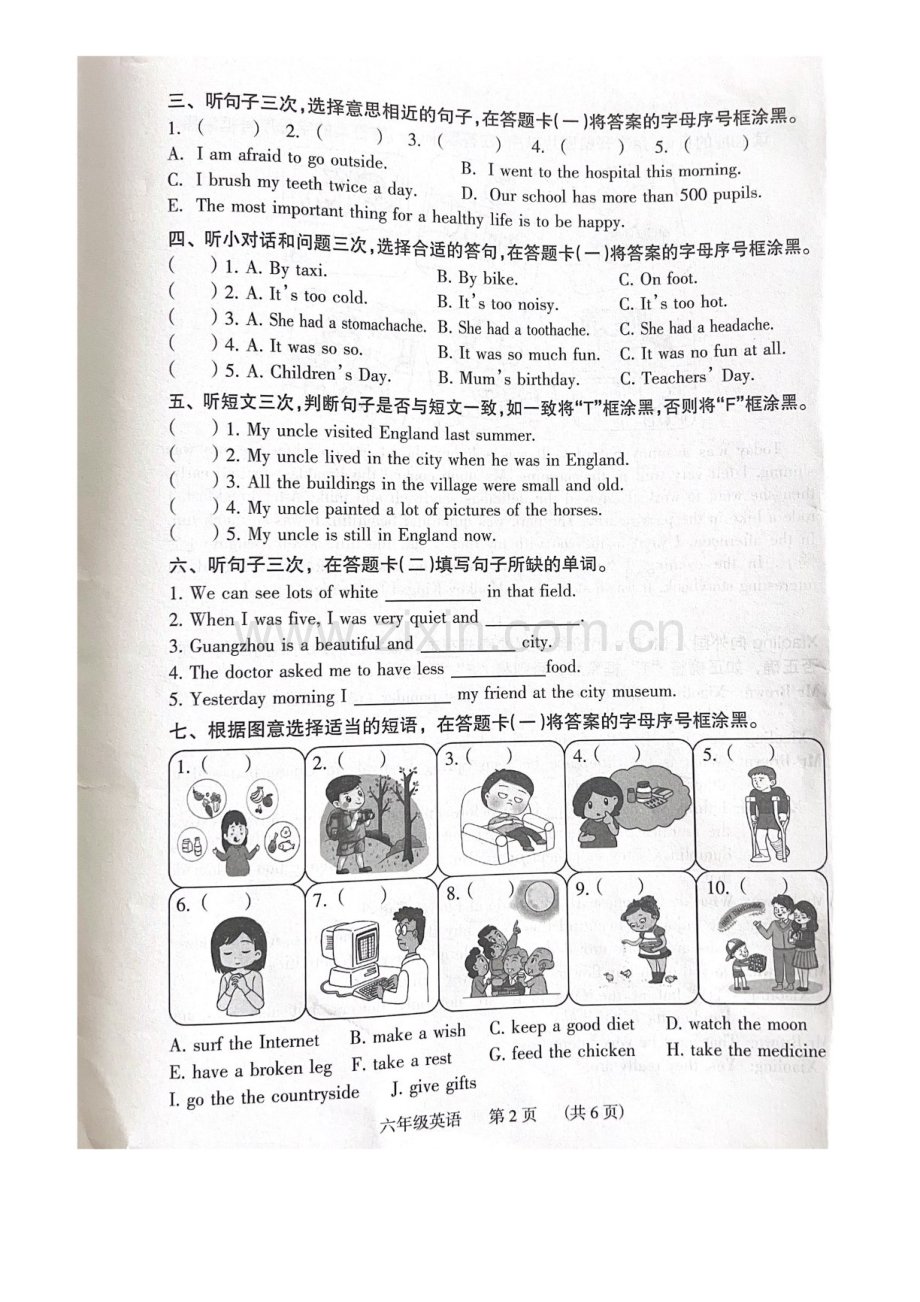 三、听句子三次,选择意思相近的句子,在答题卡(一)将答案的字母序号框涂黑。
1. (    ) 2. (    ) 3. (    ) 4. (    ) 5. (    )
A. I am afraid to go outside. B. I went to the hospital this morning.
C. I brush my teeth twice a day. D. Our school has more than 500 pupils.
E. The most important thing for a healthy life is to be happy.
四、听小对话和问题三次,选择合适的答句,在答题卡(一)将答案的字母序号框涂黑。
(    ) 1. A. By taxi. B. By bike. C. On foot.
(    ) 2. A. It's too cold. B. It's too noisy. C. It's too hot.
(    ) 3. A. She had a stomachache. B. She had a toothache. C. She had a headache.
(    ) 4. A. It was so so. B. It was so much fun. C. It was no fun at all.
(    ) 5. A. Children's Day. B. Mum's birthday. C. Teachers' Day.
五、听短文三次,判断句子是否与短文一致,如一致将“T”框涂黑,否则将“F”框涂黑。
(    ) 1. My uncle visited England last summer.
(    ) 2. My uncle lived in the city when he was in England.
(    ) 3. All the buildings in the village were small and old.
(    ) 4. My uncle painted a lot of pictures of the horses.
(    ) 5. My uncle is still in England now.
六、听句子三次，在答题卡(二)填写句子所缺的单词。
1. We can see lots of white __________ in that field.
2. When I was five, I was very quiet and __________.
3. Guangzhou is a beautiful and __________ city.
4. The doctor asked me to have less __________food.
5. Yesterday morning I __________ my friend at the city museum.
www.zixin.com.cn
七、根据图意选择适当的短语，在答题卡(一)将答案的字母序号框涂黑。
1. (    ) 2. (    ) 3. (    ) 4. (    ) 5. (    )
6. (    ) 7. (    ) 8. (    ) 9. (    ) 10. (    )
A. surf the Internet B. make a wish C. keep a good diet D. watch the moon
E. have a broken leg F. take a rest G. feed the chicken H. take the medicine
I. go the the countryside J. give gifts
六年级英语 第2页 (共6页)